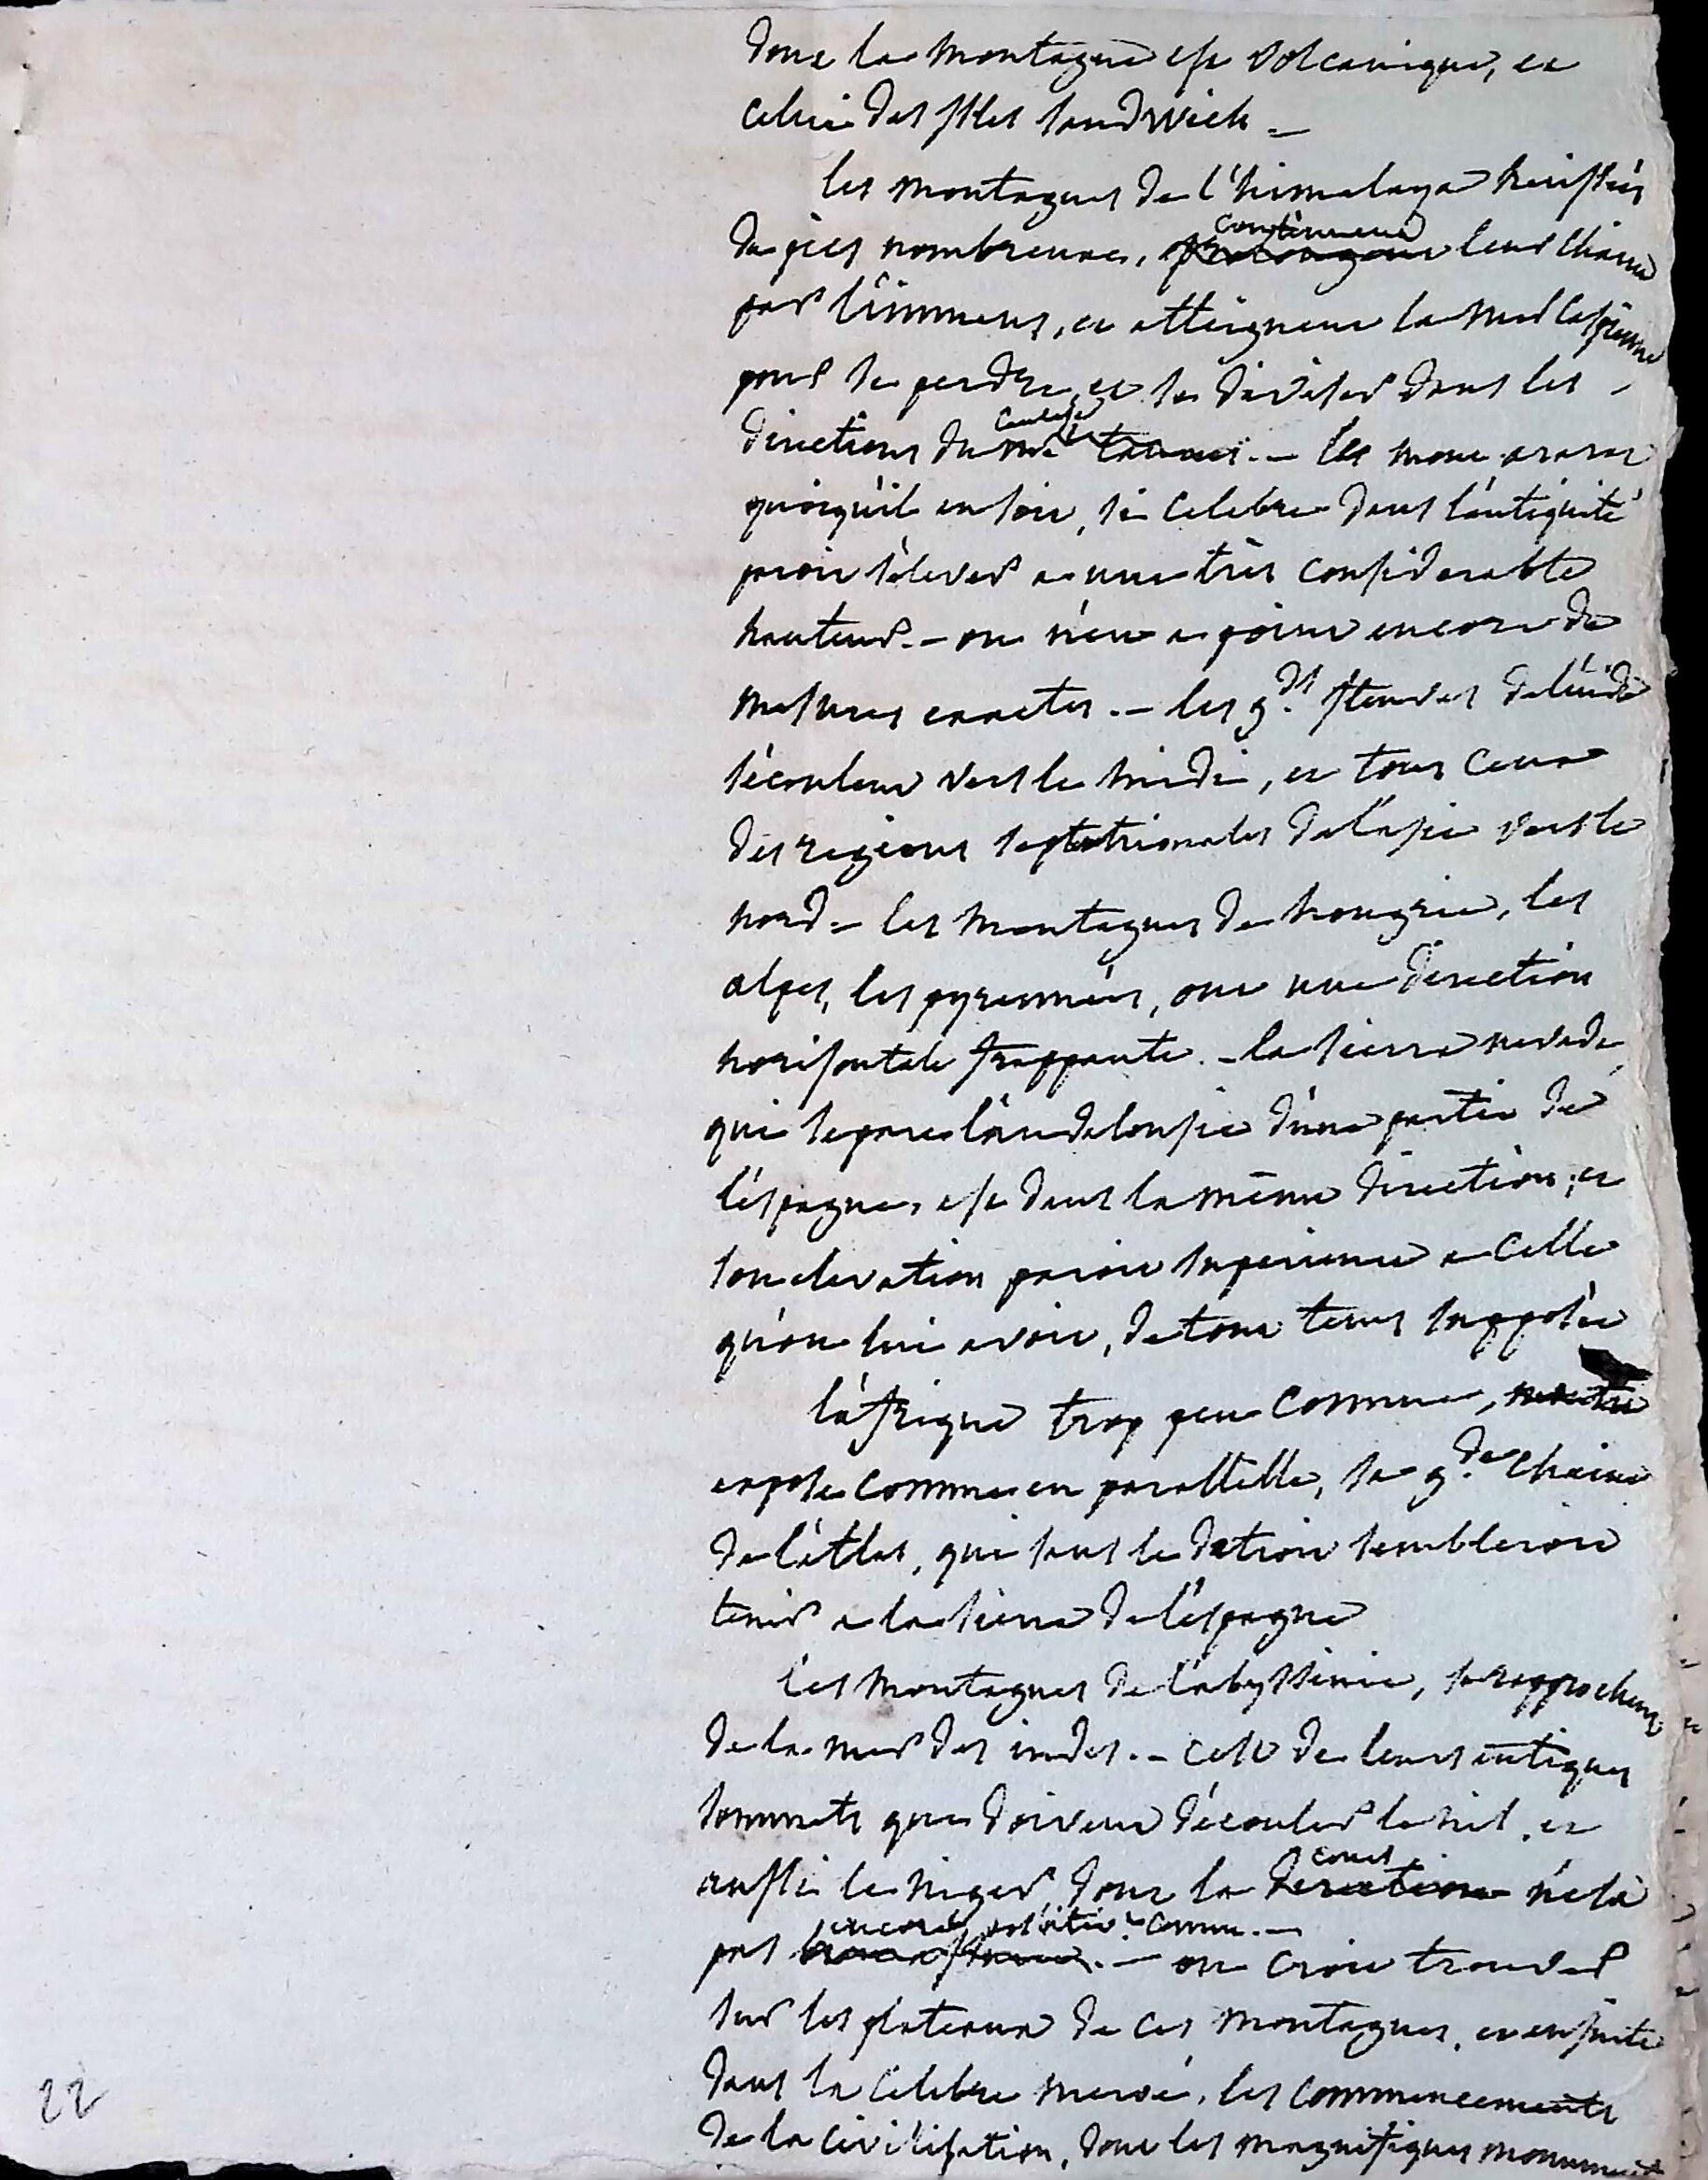 dont la montagne est volcanique, et
celui des isles sandwich –
les montagnes de l'himalaya hérissées
de pics nombreux, continuent leur chaine
par l'immaus, et atteignent la mer caspienne
pour se perdre, et se diviser dans les
directions du Caucase – le mont ararat
quoiqu'il en soit, si celebre dans l'antiquité
paroit s'élever a une très considerable
hauteur. – on n'en a point encore de
mesures exactes. – les g.ds fleuves de l'inde
s'écoulent vers le midi, et tous ceux
des regions septetrionales de l'asie vers le
nord – les montagnes de hongrie, les
alpes, les pyrennées, ont une direction
horisontale frappante. – la sierra nevada
qui separe l'andalousie d'une partie de
l'espagne, est dans la même direction, et
son elevation paroit superieure a celle
qu'on lui avoit, de tout tems supposée
l'afrique trop peu connue,
expose comme en parallelle, sa g.de chaine
de l'atlas, qui sans le detroit sembleroit
tenir a la sierra de l'espagne
Les montagnes de l'abyssinie, se rapprochent
de la mer des indes. – c'est de leurs antiques
sommets que doivent découler le nil, et
aussi le niger, dont le cours n'est
pas encore connu. – on croit trouver
sur les plateaux de ces montagnes, et ensuite
dans la celebre meroé, les commencements
de la civilisation, dont les magnifiques monuments
22